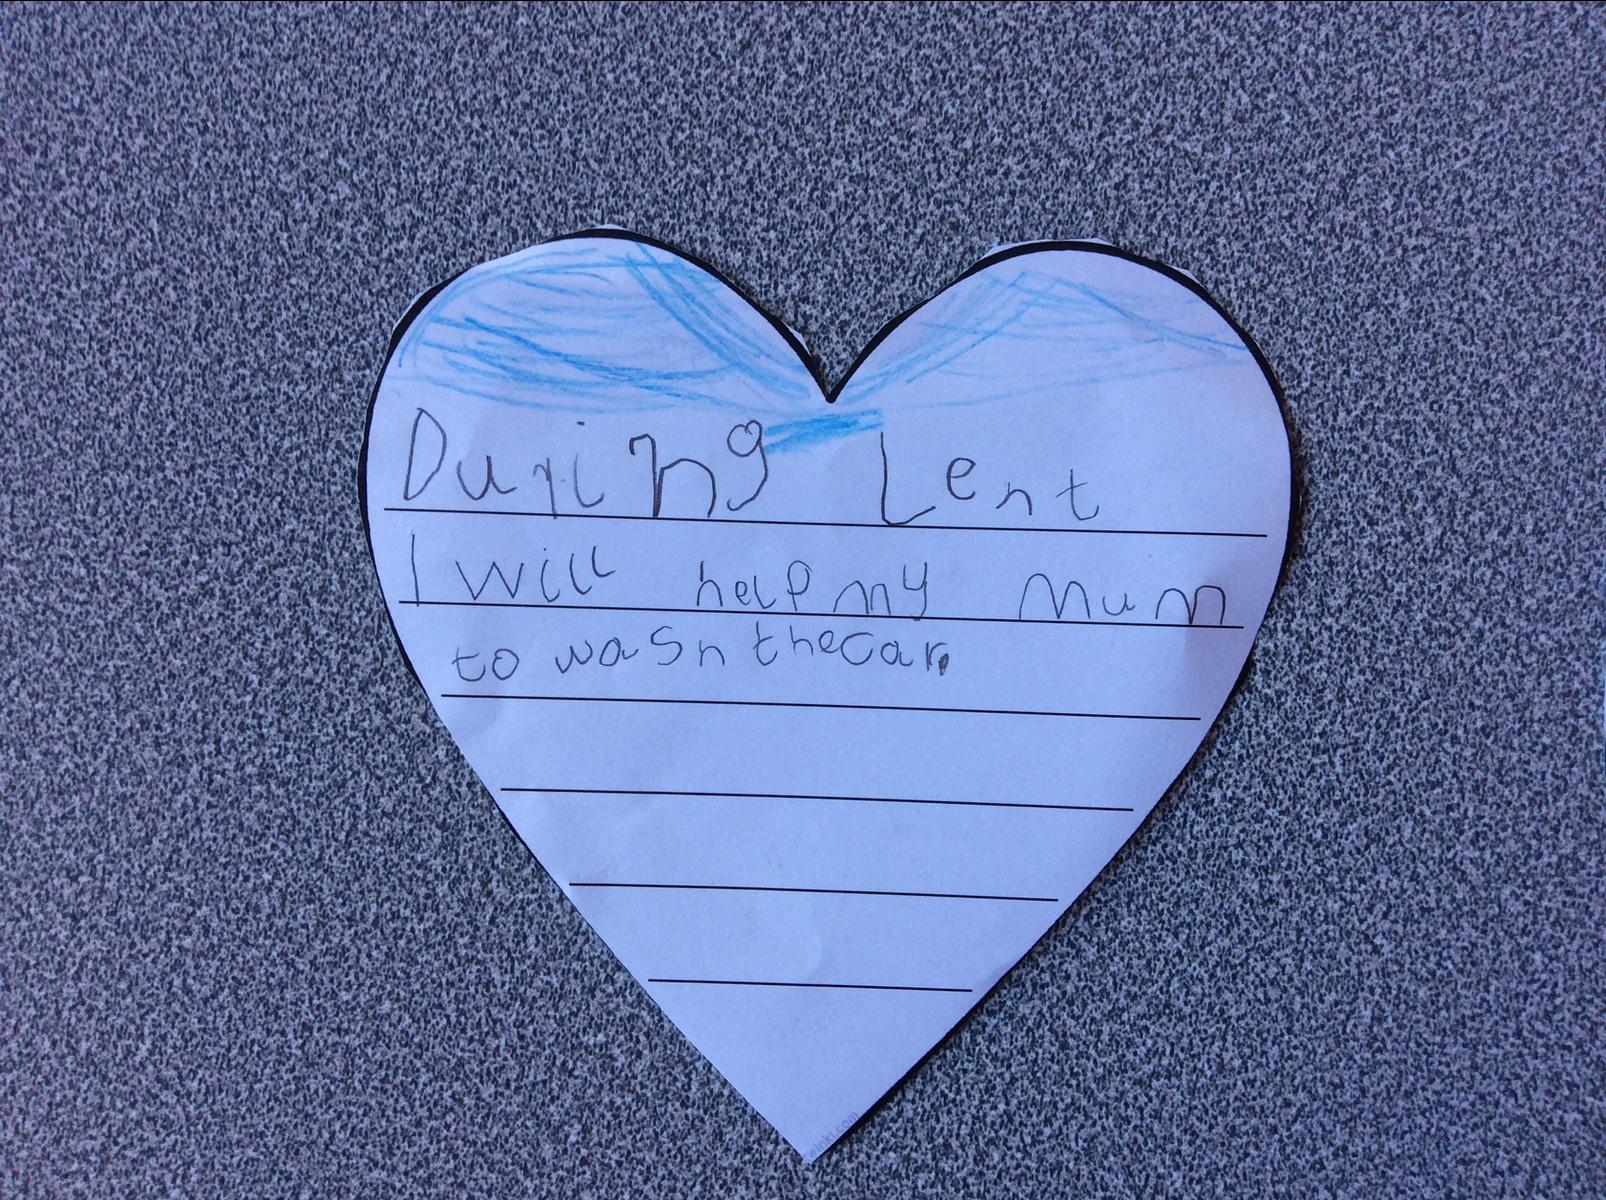 During Lent
I will help my Mum
to wash the car.